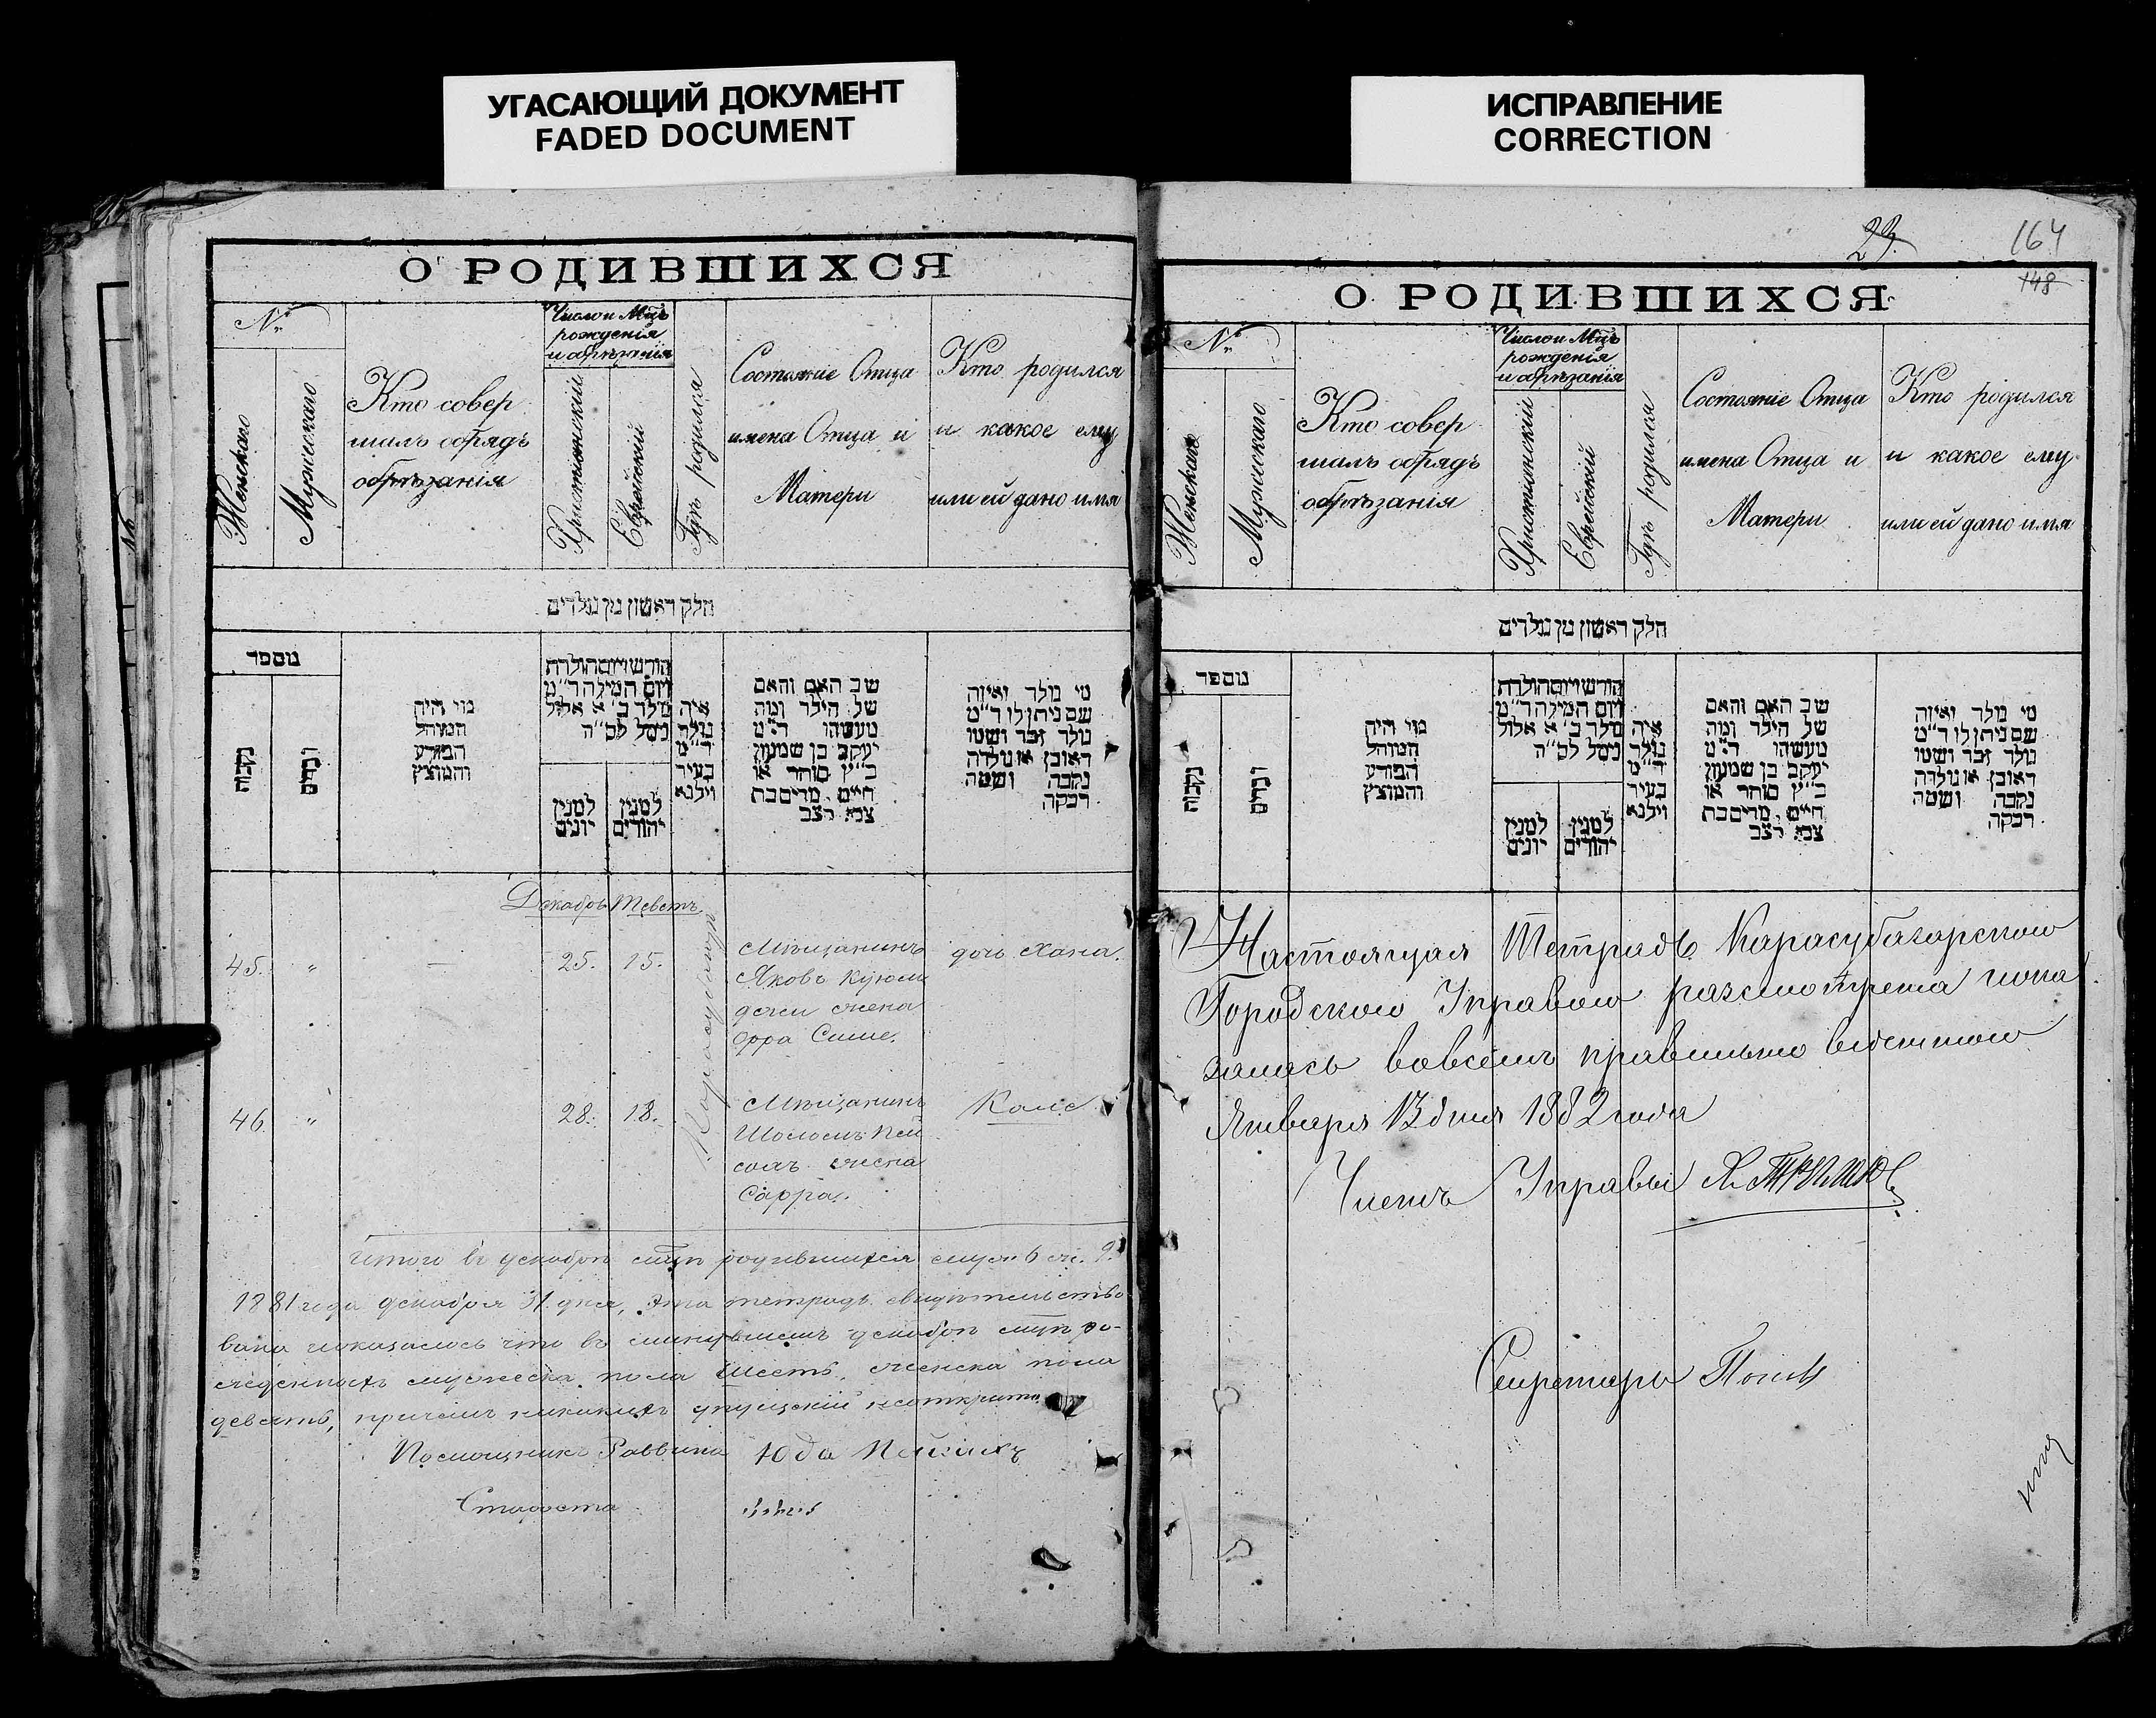 УГАСАЮЩИЙ ДОКУМЕНТ
FADED DOCUMENT
ИСПРАВЛЕНИЕ
CORRECTION
О РОДИВШИХСЯ
№
Женскаго
Мужескаго
Кто совер
шалъ обрядъ
обрѣзанія
Число и Мцъ
рожденія
и обрѣзанія
Христіонскій
Еврейскій
Гдѣ родился
Состояніе Отца
имена Отца и
Матери
Кто родился
и какое ему
или ей дано имя
חלק ראשון מן נולדים
מספר
נקבות
זכרים
מי היה
המוהל
הפורע
והמוצץ
חודש ויום הולדת
ויום המילה ד״מ
נולד ב׳ א אלול
נימל לס״ה
למנין
יונים
למנין
יהודים
איה
נולד
ד״מ
בעיר
וילנא
שב האם והאם
של הילד ומה
מעשהו ד״מ
יעקב בן שמעון
כ״ץ סוחר או
חייט, מרים בת
צבא רצב
מי נולד ואיזה
שם ניתן לו ד״מ
נולד זכר ושמו
ראובן או נולדה
נקבה ושמה
רבקה
Декабрь Теветъ
45. " — 25. 15. Карасубазаръ Мѣщанинъ дочь Хана.
Яковъ Куюм
джи жена
Фра Симе.
46. " 28. 18. Мѣщанинъ Кале
Шоломъ Пей
сахъ жена
Сарра.
Итого въ декабрѣ мцѣ родившихся муж. 6 ж. 9.
1881 года декабря 31. дня, эта тетрадь свидѣтельство
вана и оказалось что въ минувшемъ декабрѣ мцѣ ро-
жденныхъ мужеска пола шесть, женска пола
девять, причемъ никакихъ упущеній не открыто.
Помощникъ Раввина Юда
Староста
29.
164
148
О РОДИВШИХСЯ
№
Женскаго
Мужескаго
Кто совер
шалъ обрядъ
обрѣзанія
Число и Мцъ
рожденія
и обрѣзанія
Христіонскій
Еврейскій
Гдѣ родился
Состояніе Отца
имена Отца и
Матери
Кто родился
и какое ему
или ей дано имя
חלק ראשון מן נולדים
מספר
נקבות
זכרים
מי היה
המוהל
הפורע
והמוצץ
חודש ויום הולדת
ויום המילה ד״מ
נולד ב׳ א אלול
נימל לס״ה
למנין
יונים
למנין
יהודים
איה
נולד
ד״מ
בעיר
וילנא
שב האם והאם
של הילד ומה
מעשהו ד״מ
יעקב בן שמעון
כ״ץ סוחר או
חייט, מרים בת
צבא רצב
מי נולד ואיזה
שם ניתן לו ד״מ
נולד זכר ושמו
ראובן או נולדה
נקבה ושמה
רבקה
Настоящая Тетрадь Карасубазарскою
Городскою Управою разсмотрена и ока
залась вовсемъ правильно веденною
Января 13 дня 1882 года
Членъ Управы
Секретарь